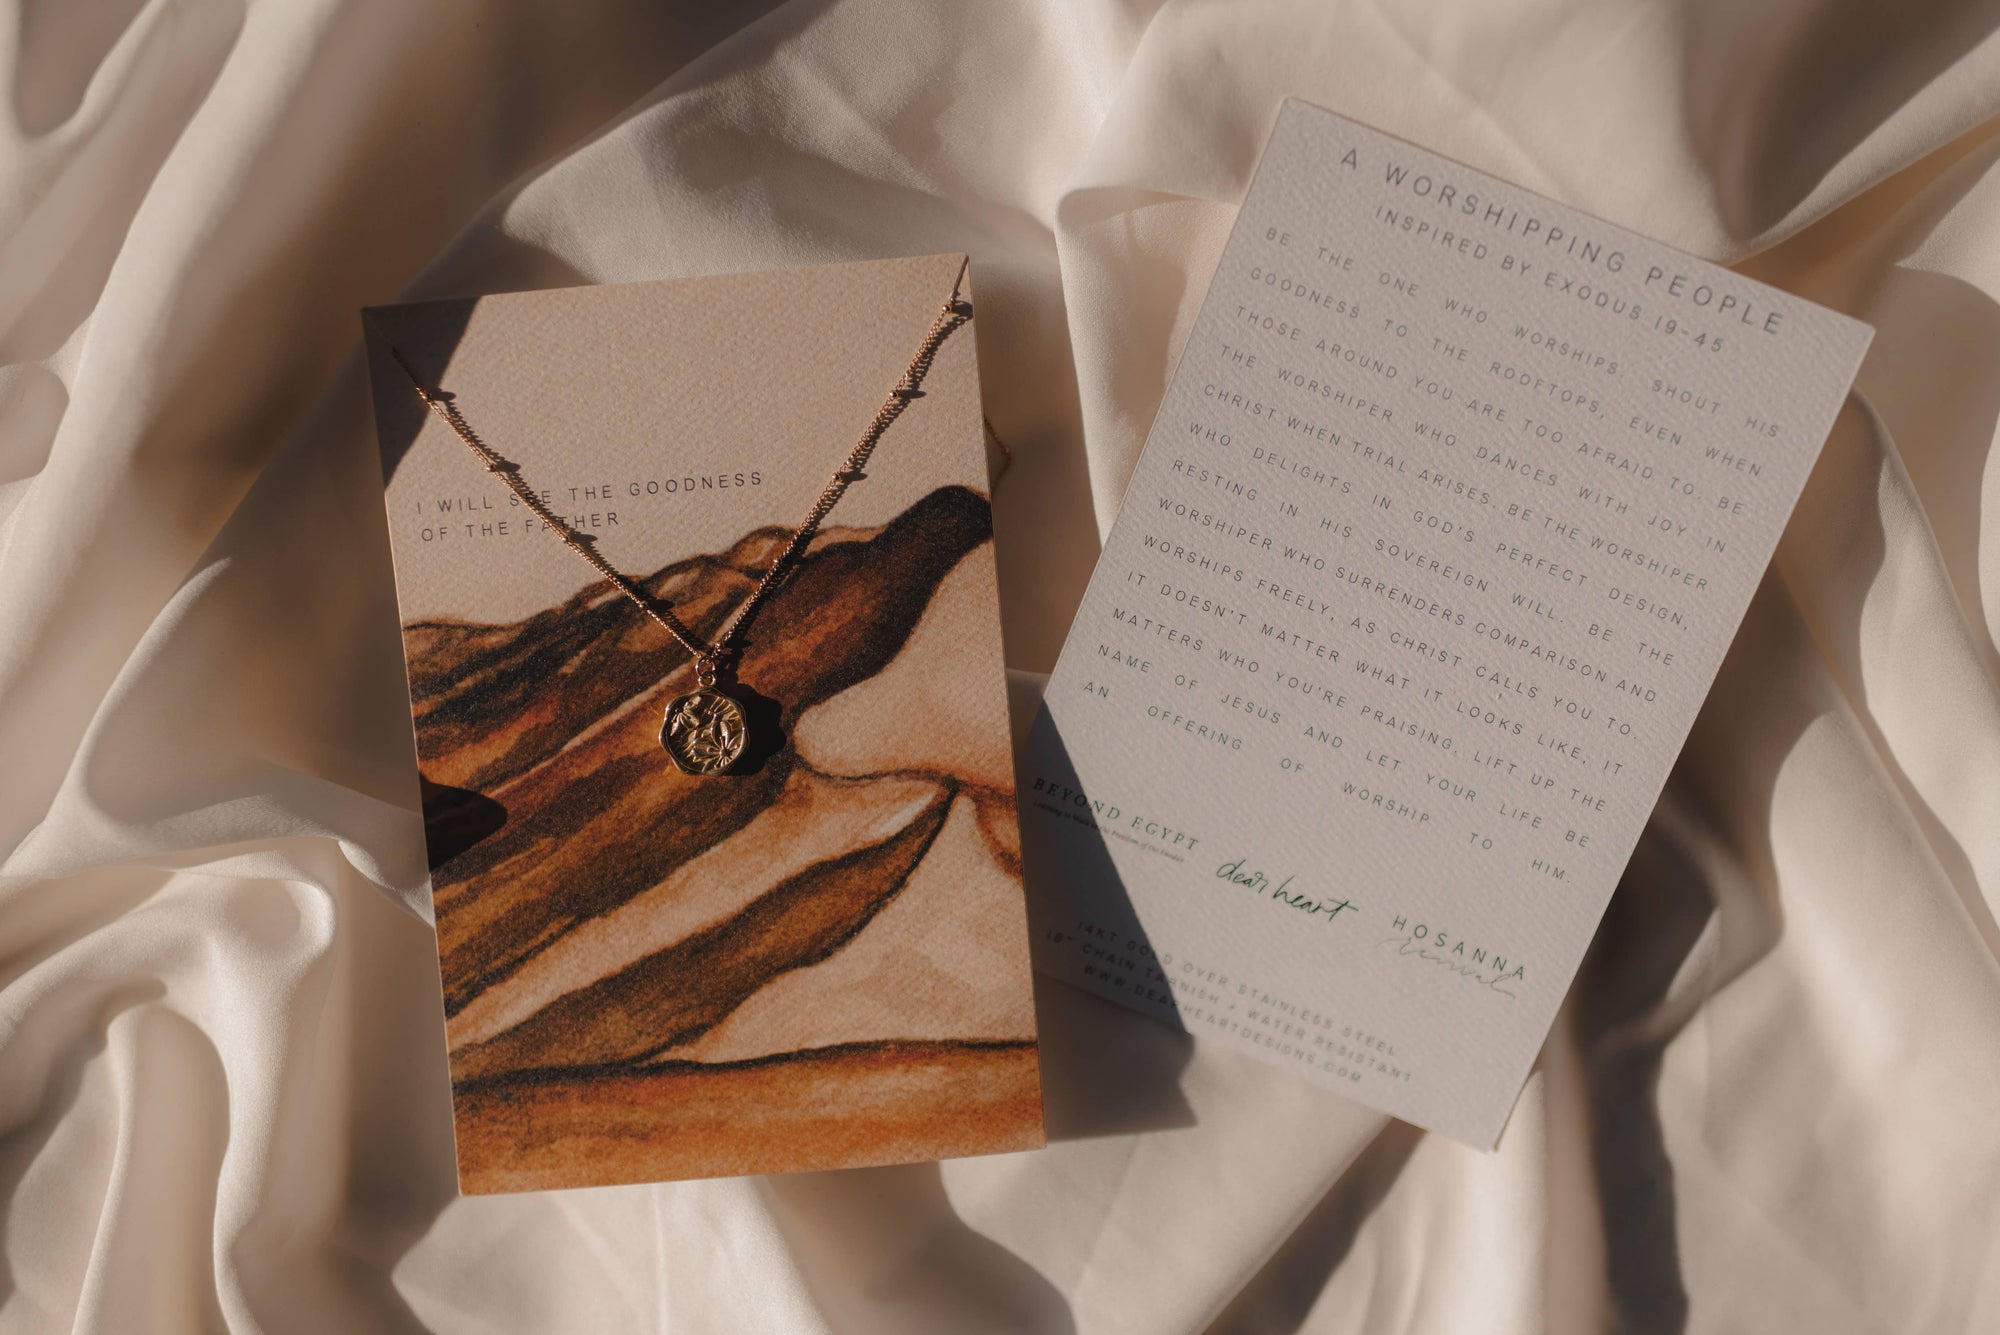 I WILL SEE THE GOODNESS
OF THE FATHER
A WORSHIPPING PEOPLE
INSPIRED BY EXODUS 19-45
BE THE ONE WHO WORSHIPS. SHOUT HIS
GOODNESS TO THE ROOFTOPS, EVEN WHEN
THOSE AROUND YOU ARE TOO AFRAID TO. BE
THE WORSHIPER WHO DANCES WITH JOY IN
CHRIST WHEN TRIAL ARISES. BE THE WORSHIPER
WHO DELIGHTS IN GOD'S PERFECT DESIGN,
RESTING IN HIS SOVEREIGN WILL. BE THE
WORSHIPER WHO SURRENDERS COMPARISON AND
WORSHIPS FREELY, AS CHRIST CALLS YOU TO.
IT DOESN'T MATTER WHAT IT LOOKS LIKE, IT
MATTERS WHO YOU'RE PRAISING. LIFT UP THE
NAME OF JESUS AND LET YOUR LIFE BE
AN OFFERING OF WORSHIP TO HIM.
BEYOND EGYPT
Learning to Walk in the Freedom of the Father
dear heart
HOSANNA
revival
14KT GOLD OVER STAINLESS STEEL
18" CHAIN TARNISH + WATER RESISTANT
WWW.DEARHEARTDESIGNS.COM